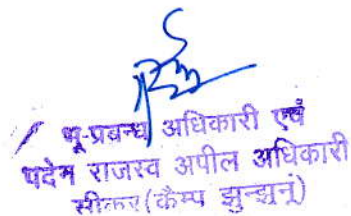 भू-प्रबन्ध अधिकारी एवं
पदेन राजस्व अपील अधिकारी
सीकर (कैम्प झुन्झनूं)